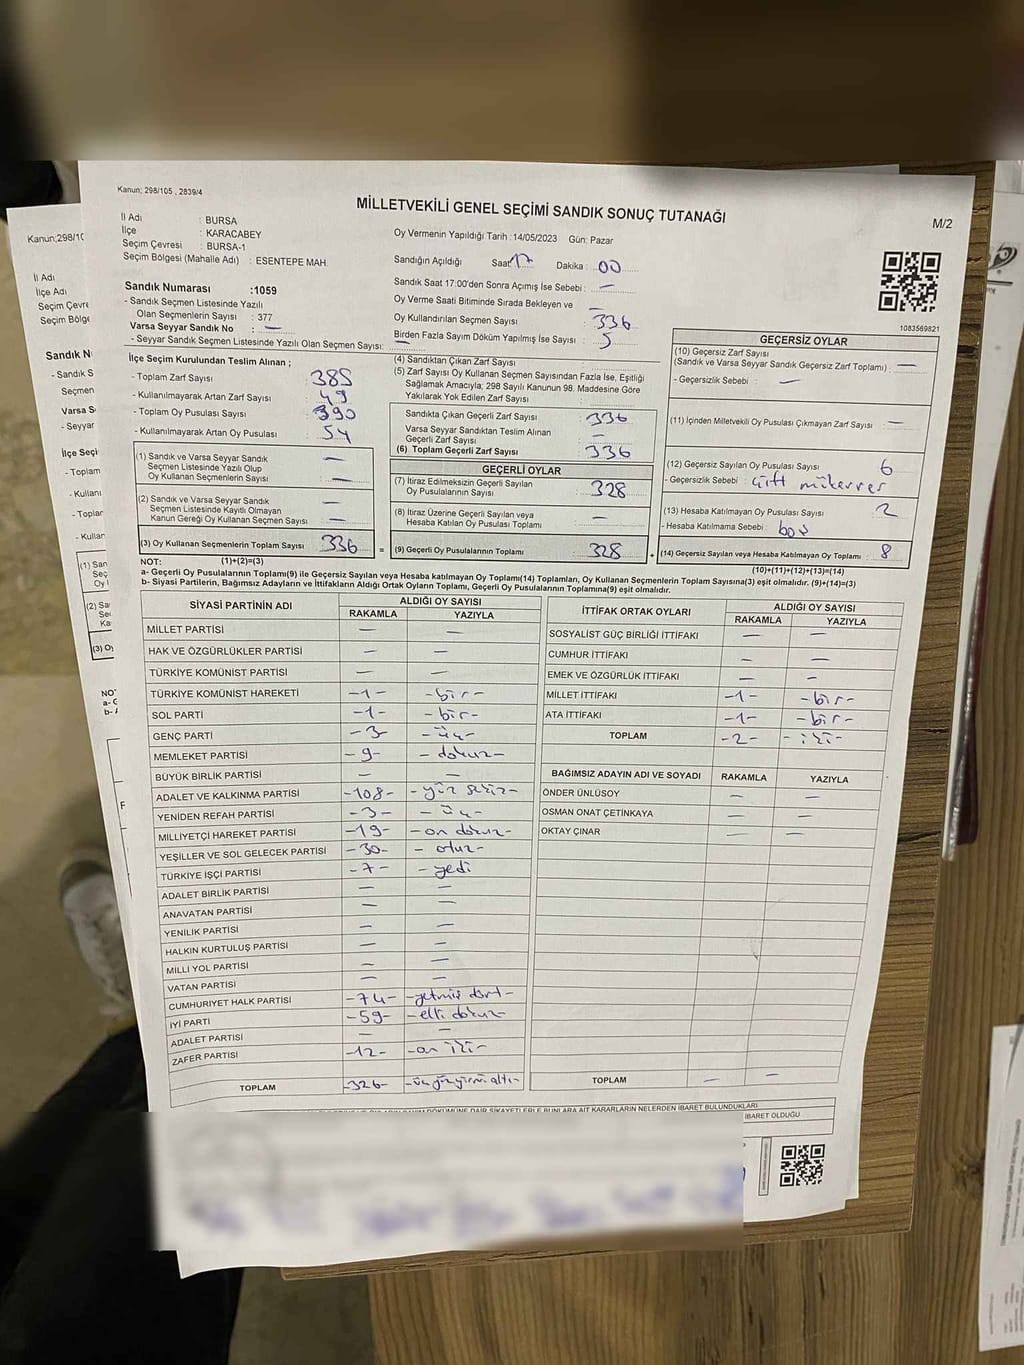 Kanun: 298/105 , 2839/4
MİLLETVEKİLİ GENEL SEÇİMİ SANDIK SONUÇ TUTANAĞI
M/2
İl Adı : BURSA
İlçe : KARACABEY
Seçim Çevresi : BURSA-1
Seçim Bölgesi (Mahalle Adı) : ESENTEPE MAH.
Oy Vermenin Yapıldığı Tarih : 14/05/2023 Gün: Pazar
Sandığın Açıldığı Saat 17 Dakika : 00
Sandık Saat 17:00'den Sonra Açımış İse Sebebi : —
Oy Verme Saati Bitiminde Sırada Bekleyen ve
Oy Kullandırılan Seçmen Sayısı : 336
Birden Fazla Sayım Döküm Yapılmış İse Sayısı : 5
1083569821
Sandık Numarası :1059
- Sandık Seçmen Listesinde Yazılı
Olan Seçmenlerin Sayısı : 377
Varsa Seyyar Sandık No : —
- Seyyar Sandık Seçmen Listesinde Yazılı Olan Seçmen Sayısı: —
İlçe Seçim Kurulundan Teslim Alınan ;
- Toplam Zarf Sayısı : 385
- Kullanılmayarak Artan Zarf Sayısı : 49
- Toplam Oy Pusulası Sayısı : 390
- Kullanılmayarak Artan Oy Pusulası : 54
(1) Sandık ve Varsa Seyyar Sandık
Seçmen Listesinde Yazılı Olup
Oy Kullanan Seçmenlerin Sayısı : —
(2) Sandık ve Varsa Seyyar Sandık
Seçmen Listesinde Kayıtlı Olmayan
Kanun Gereği Oy Kullanan Seçmen Sayısı : —
(3) Oy Kullanan Seçmenlerin Toplam Sayısı : 336
(1)+(2)=(3)
(4) Sandıktan Çıkan Zarf Sayısı :
(5) Zarf Sayısı Oy Kullanan Seçmen Sayısından Fazla İse, Eşitliği
Sağlamak Amacıyla; 298 Sayılı Kanunun 98. Maddesine Göre
Yakılarak Yok Edilen Zarf Sayısı :
Sandıkta Çıkan Geçerli Zarf Sayısı : 336
Varsa Seyyar Sandıktan Teslim Alınan
Geçerli Zarf Sayısı : —
(6) Toplam Geçerli Zarf Sayısı : 336
GEÇERLİ OYLAR
(7) İtiraz Edilmeksizin Geçerli Sayılan
Oy Pusulalarının Sayısı : 328
(8) İtiraz Üzerine Geçerli Sayılan veya
Hesaba Katılan Oy Pusulası Toplamı : —
= (9) Geçerli Oy Pusulalarının Toplamı : 328 +
GEÇERSİZ OYLAR
(10) Geçersiz Zarf Sayısı
(Sandık ve Varsa Seyyar Sandık Geçersiz Zarf Toplamı) : —
- Geçersizlik Sebebi : —
(11) İçinden Milletvekili Oy Pusulası Çıkmayan Zarf Sayısı : —
(12) Geçersiz Sayılan Oy Pusulası Sayısı : 6
- Geçersizlik Sebebi : Çift mükerrer
(13) Hesaba Katılmayan Oy Pusulası Sayısı : 2
- Hesaba Katılmama Sebebi : boş
(14) Geçersiz Sayılan veya Hesaba Katılmayan Oy Toplamı : 8
(10)+(11)+(12)+(13)=(14)
NOT:
a- Geçerli Oy Pusulalarının Toplamı(9) ile Geçersiz Sayılan veya Hesaba katılmayan Oy Toplamı(14) Toplamları, Oy Kullanan Seçmenlerin Toplam Sayısına(3) eşit olmalıdır. (9)+(14)=(3)
b- Siyasi Partilerin, Bağımsız Adayların ve İttifakların Aldığı Ortak Oyların Toplamı, Geçerli Oy Pusulalarının Toplamına(9) eşit olmalıdır.
SİYASİ PARTİNİN ADI ALDIĞI OY SAYISI
RAKAMLA YAZIYLA
MİLLET PARTİSİ — —
HAK VE ÖZGÜRLÜKLER PARTİSİ — —
TÜRKİYE KOMÜNİST PARTİSİ — —
TÜRKİYE KOMÜNİST HAREKETİ -1- -bir-
SOL PARTİ -1- -bir-
GENÇ PARTİ -3- -üç-
MEMLEKET PARTİSİ -9- -dokuz-
BÜYÜK BİRLİK PARTİSİ — —
ADALET VE KALKINMA PARTİSİ -108- -yüz sekiz-
YENİDEN REFAH PARTİSİ -3- -üç-
MİLLİYETÇİ HAREKET PARTİSİ -19- -on dokuz-
YEŞİLLER VE SOL GELECEK PARTİSİ -30- -otuz-
TÜRKİYE İŞÇİ PARTİSİ -7- -yedi
ADALET BİRLİK PARTİSİ — —
ANAVATAN PARTİSİ — —
YENİLİK PARTİSİ — —
HALKIN KURTULUŞ PARTİSİ — —
MİLLİ YOL PARTİSİ — —
VATAN PARTİSİ — —
CUMHURİYET HALK PARTİSİ -74- -yetmiş dört-
İYİ PARTİ -59- -elli dokuz-
ADALET PARTİSİ — —
ZAFER PARTİSİ -12- -on iki-
TOPLAM -326- -üçyüzyirmialtı-
İTTİFAK ORTAK OYLARI ALDIĞI OY SAYISI
RAKAMLA YAZIYLA
SOSYALİST GÜÇ BİRLİĞİ İTTİFAKI — —
CUMHUR İTTİFAKI — —
EMEK VE ÖZGÜRLÜK İTTİFAKI — —
MİLLET İTTİFAKI -1- -bir-
ATA İTTİFAKI -1- -bir-
TOPLAM -2- -iki-
BAĞIMSIZ ADAYIN ADI VE SOYADI RAKAMLA YAZIYLA
ÖNDER ÜNLÜSOY — —
OSMAN ONAT ÇETİNKAYA — —
OKTAY ÇINAR — —
TOPLAM — —
İBARET OLDUĞU
Kanun:298/10
İl Adı
İlçe Adı
Seçim Çevre
Seçim Bölg
Sandık N
- Sandık S
Seçmen
Varsa S
- Seyyar
İlçe Seçi
- Topla
- Kullanı
- Toplar
- Kullar
(1) San
Seç
Oy I
(2) Sa
Se
Ka
(3) O
NO
a- G
b-